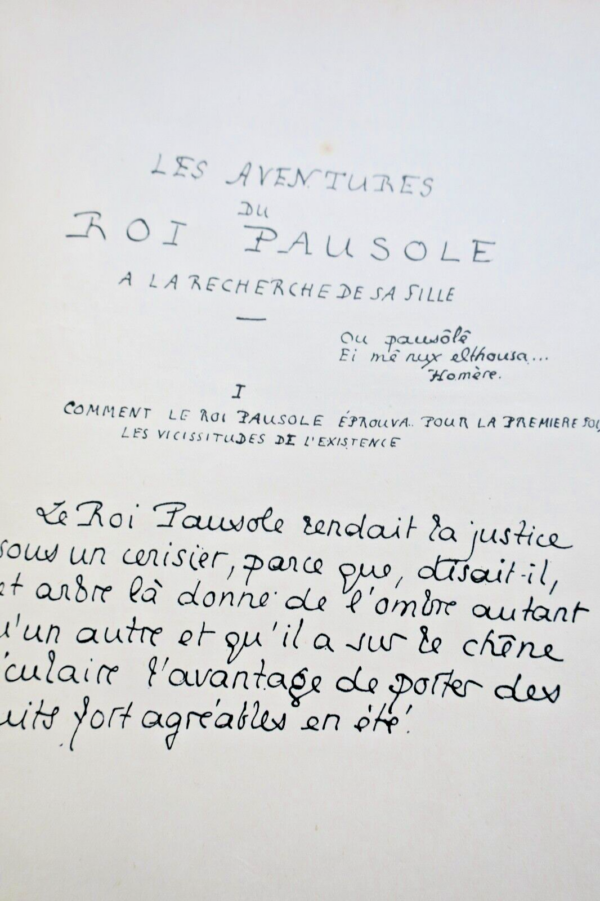 LES AVENTURES
DU
ROI PAUSOLE
A LA RECHERCHE DE SA FILLE
Ou pausôlê
Ei mê nux elthousa...
Homère.
I
COMMENT LE ROI PAUSOLE ÉPROUVA.. POUR LA PREMIERE FOI
LES VICISSITUDES DE L'EXISTENCE
Le Roi Pausole rendait la justice
sous un cerisier, parce que, disait-il,
et arbre là donne de l'ombre autant
u'un autre et qu'il a sur le chêne
culaire l'avantage de porter des
uits fort agréables en été.